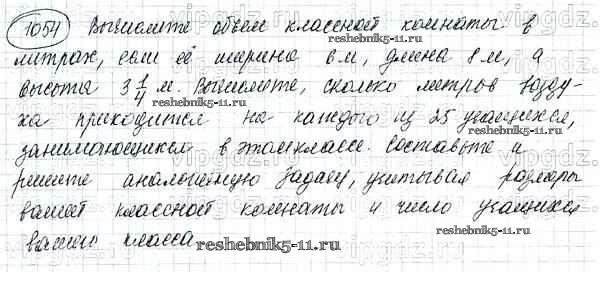 1054 Вычислите объем классной комнаты в
литрах, если её ширина 6 м, длина 8 м, а
высота 3 1/4 м. Вычислите, сколько литров возду-
ха приходится на каждого из 25 учащихся,
занимающихся в этом классе. Составьте и
решите аналогичную задачу, учитывая размеры
вашей классной комнаты и число учащихся
вашего класса
reshebnik5-11.ru
reshebnik5-11.ru
reshebnik5-11.ru
vipgdz.ru